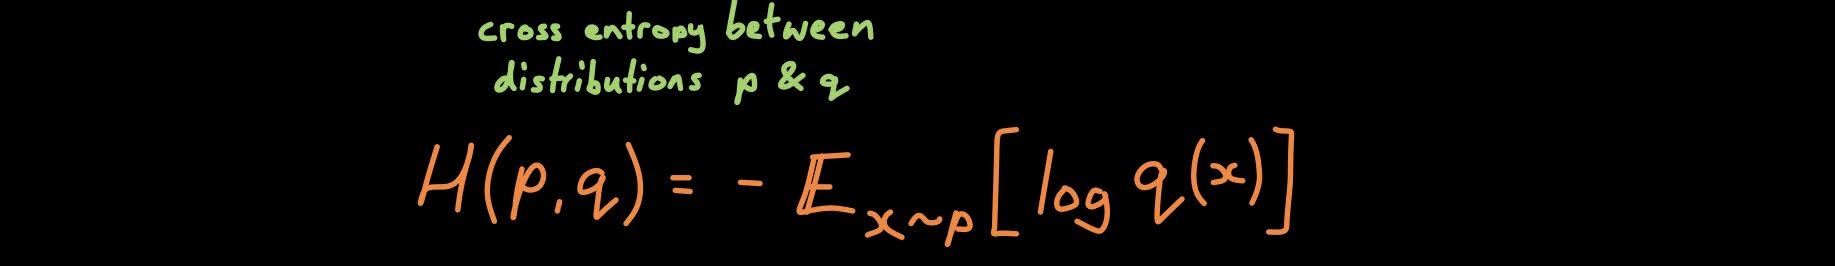 cross entropy between
distributions p & q
H(p,q) = - 𝔼_{x~p} [log q(x)]